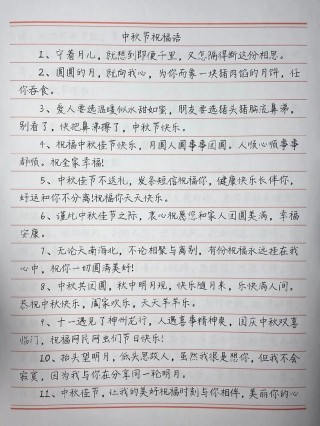 中秋节祝福语
1、守着月儿，就想到那便千里，又怎隔得断这份相思。
2、圆圆的月，就向我心，为你而象一块猪肉馅的月饼，任
你吞食。
3、爱人要选温暖似水甜如蜜，朋友要选猪头猪脑流鼻涕，
别看了，快把鼻涕擦了，中秋节快乐。
4、祝福中秋佳节快乐，月圆人圆事事团圆。人顺心顺事事
都顺。祝全家幸福!
5、中秋佳节不送礼，发条短信祝福你，健康快乐长伴你，
好运和你不分离!祝福你天天快乐。
6、谨此中秋佳节之际，衷心祝愿您和家人团圆美满，幸福
安康。
7、无论天南海北，不论相聚与离别，有份祝福永远挂在我
心中，祝你一切圆满美好!
8、中秋共团圆，秋中明月现，快乐随月来，乐快满人间，
恭祝中秋快乐，阖家欢乐，天天羊羊乐。
9、十一遇见了神州龙行，人遇喜事精神爽，国庆中秋双喜
临门，祝福网民网虫们节日快乐!
10、抬头望明月，低头思故人，虽然我很是想你，但我不会
寂寞，因为我与你在分享同一轮明月。
11、中秋佳节，让我的美好祝福时刻与你相伴，美丽你的心